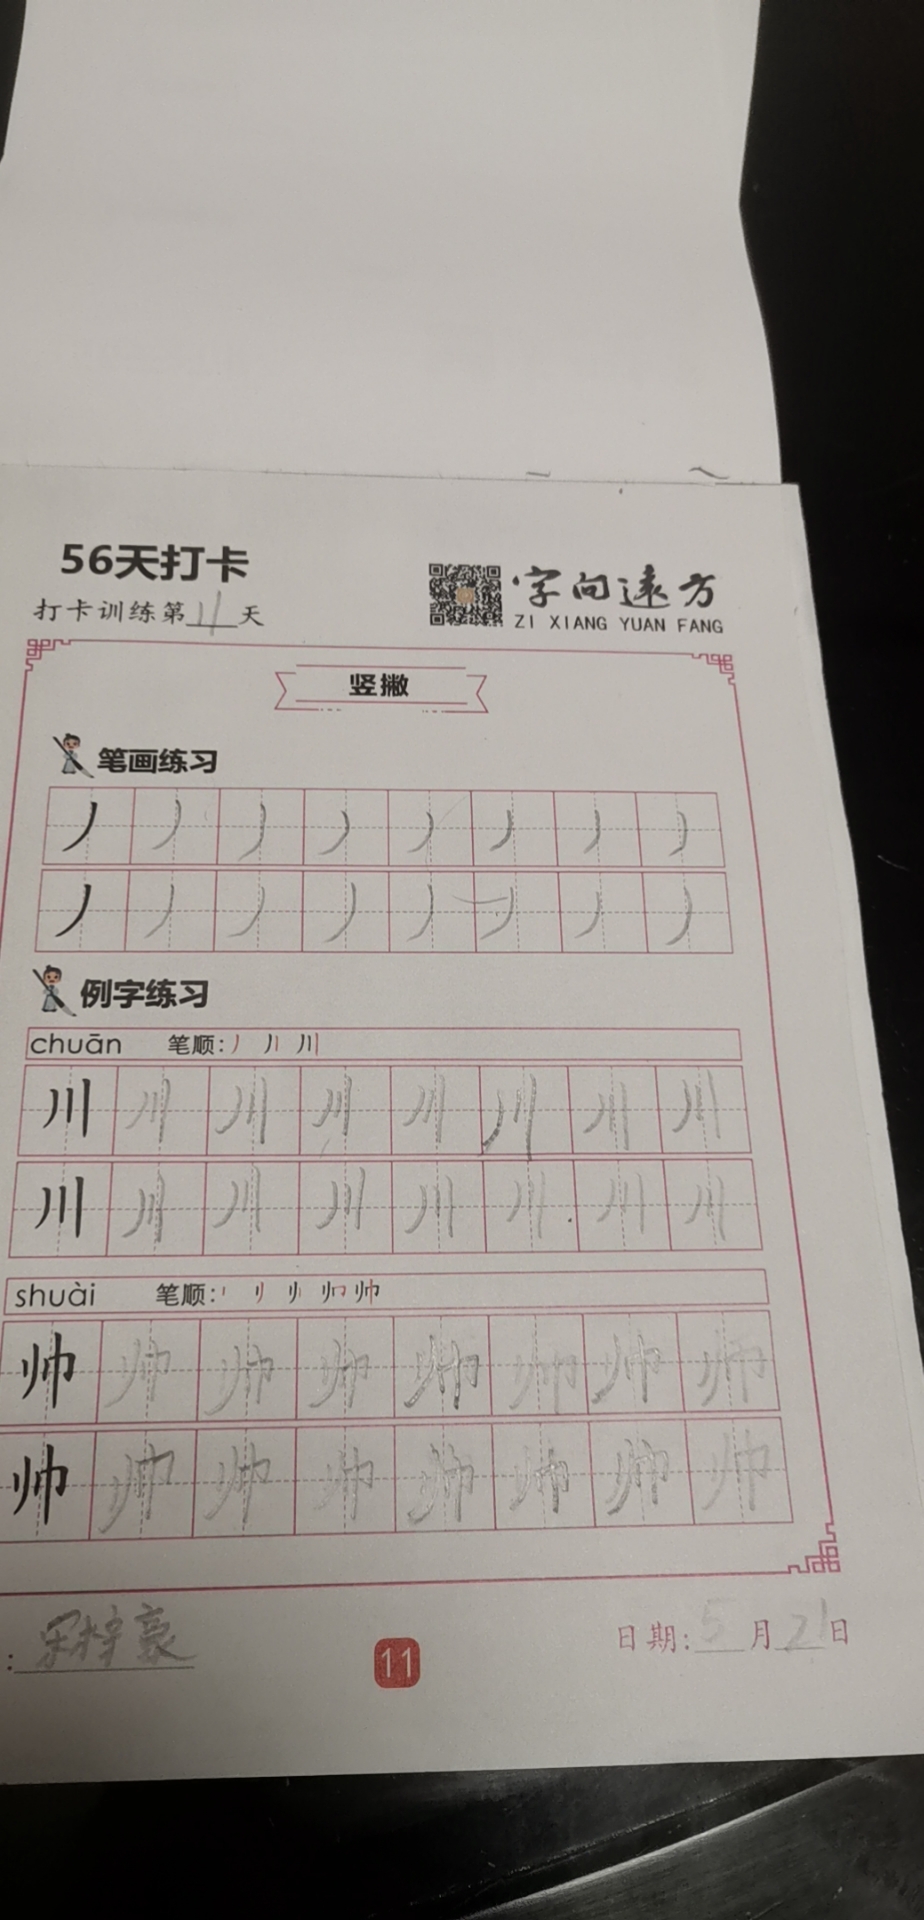 56天打卡
打卡训练第11天
字向远方
ZI XIANG YUAN FANG
竖撇
笔画练习
丿 丿 丿 丿 丿 丿 丿 丿
丿 丿 丿 丿 丿 丿 丿 丿
例字练习
chuān 笔顺: 丿 丿丨 川
川 川 川 川 川 川 川 川
川 川 川 川 川 川 川 川
shuài 笔顺: 帅
帅 帅 帅 帅 帅 帅 帅 帅
帅 帅 帅 帅 帅 帅 帅 帅
: 梓豪
11
日期: 5月21日